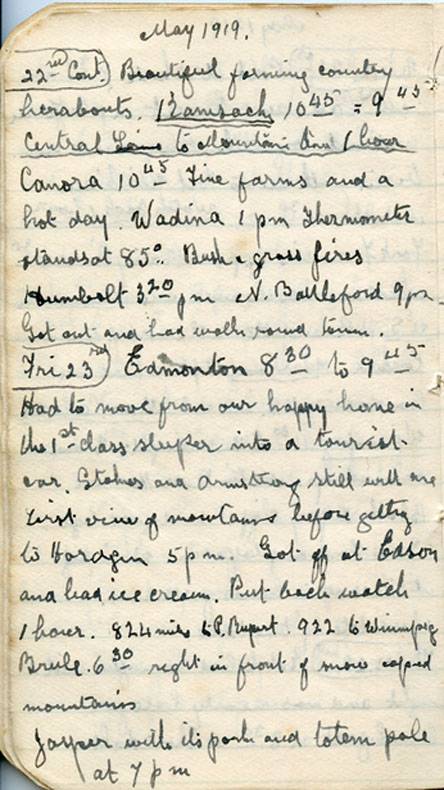 May 1919.
22nd Cont. Beautiful farming country
herabouts. Kamsack 10 45 = 9 45
Central Line to Mountain diff 1 hour
Canora 10 45 Fine farms and a
hot day. Wadina 1 pm Thermometer
stands at 85°. Bush & grass fires
Humbolt 3 20 pm N. Battleford 9 pm
Got out and had walk round town.
Fri 23rd Edmonton 8 30 to 9 45
Had to move from our happy home in
the 1st class sleeper into a tourist
car. Stokes and Armstrong still with me
First view of mountains before getting
to Hordgin 5 pm. Got off at Edson
and had ice cream. Put back watch
1 hour. 824 miles to P. Rupert. 922 to Winnipeg
Brule. 6 30 right in front of snow caped
mountains
Jasper with its park and totem pole
at 7 pm